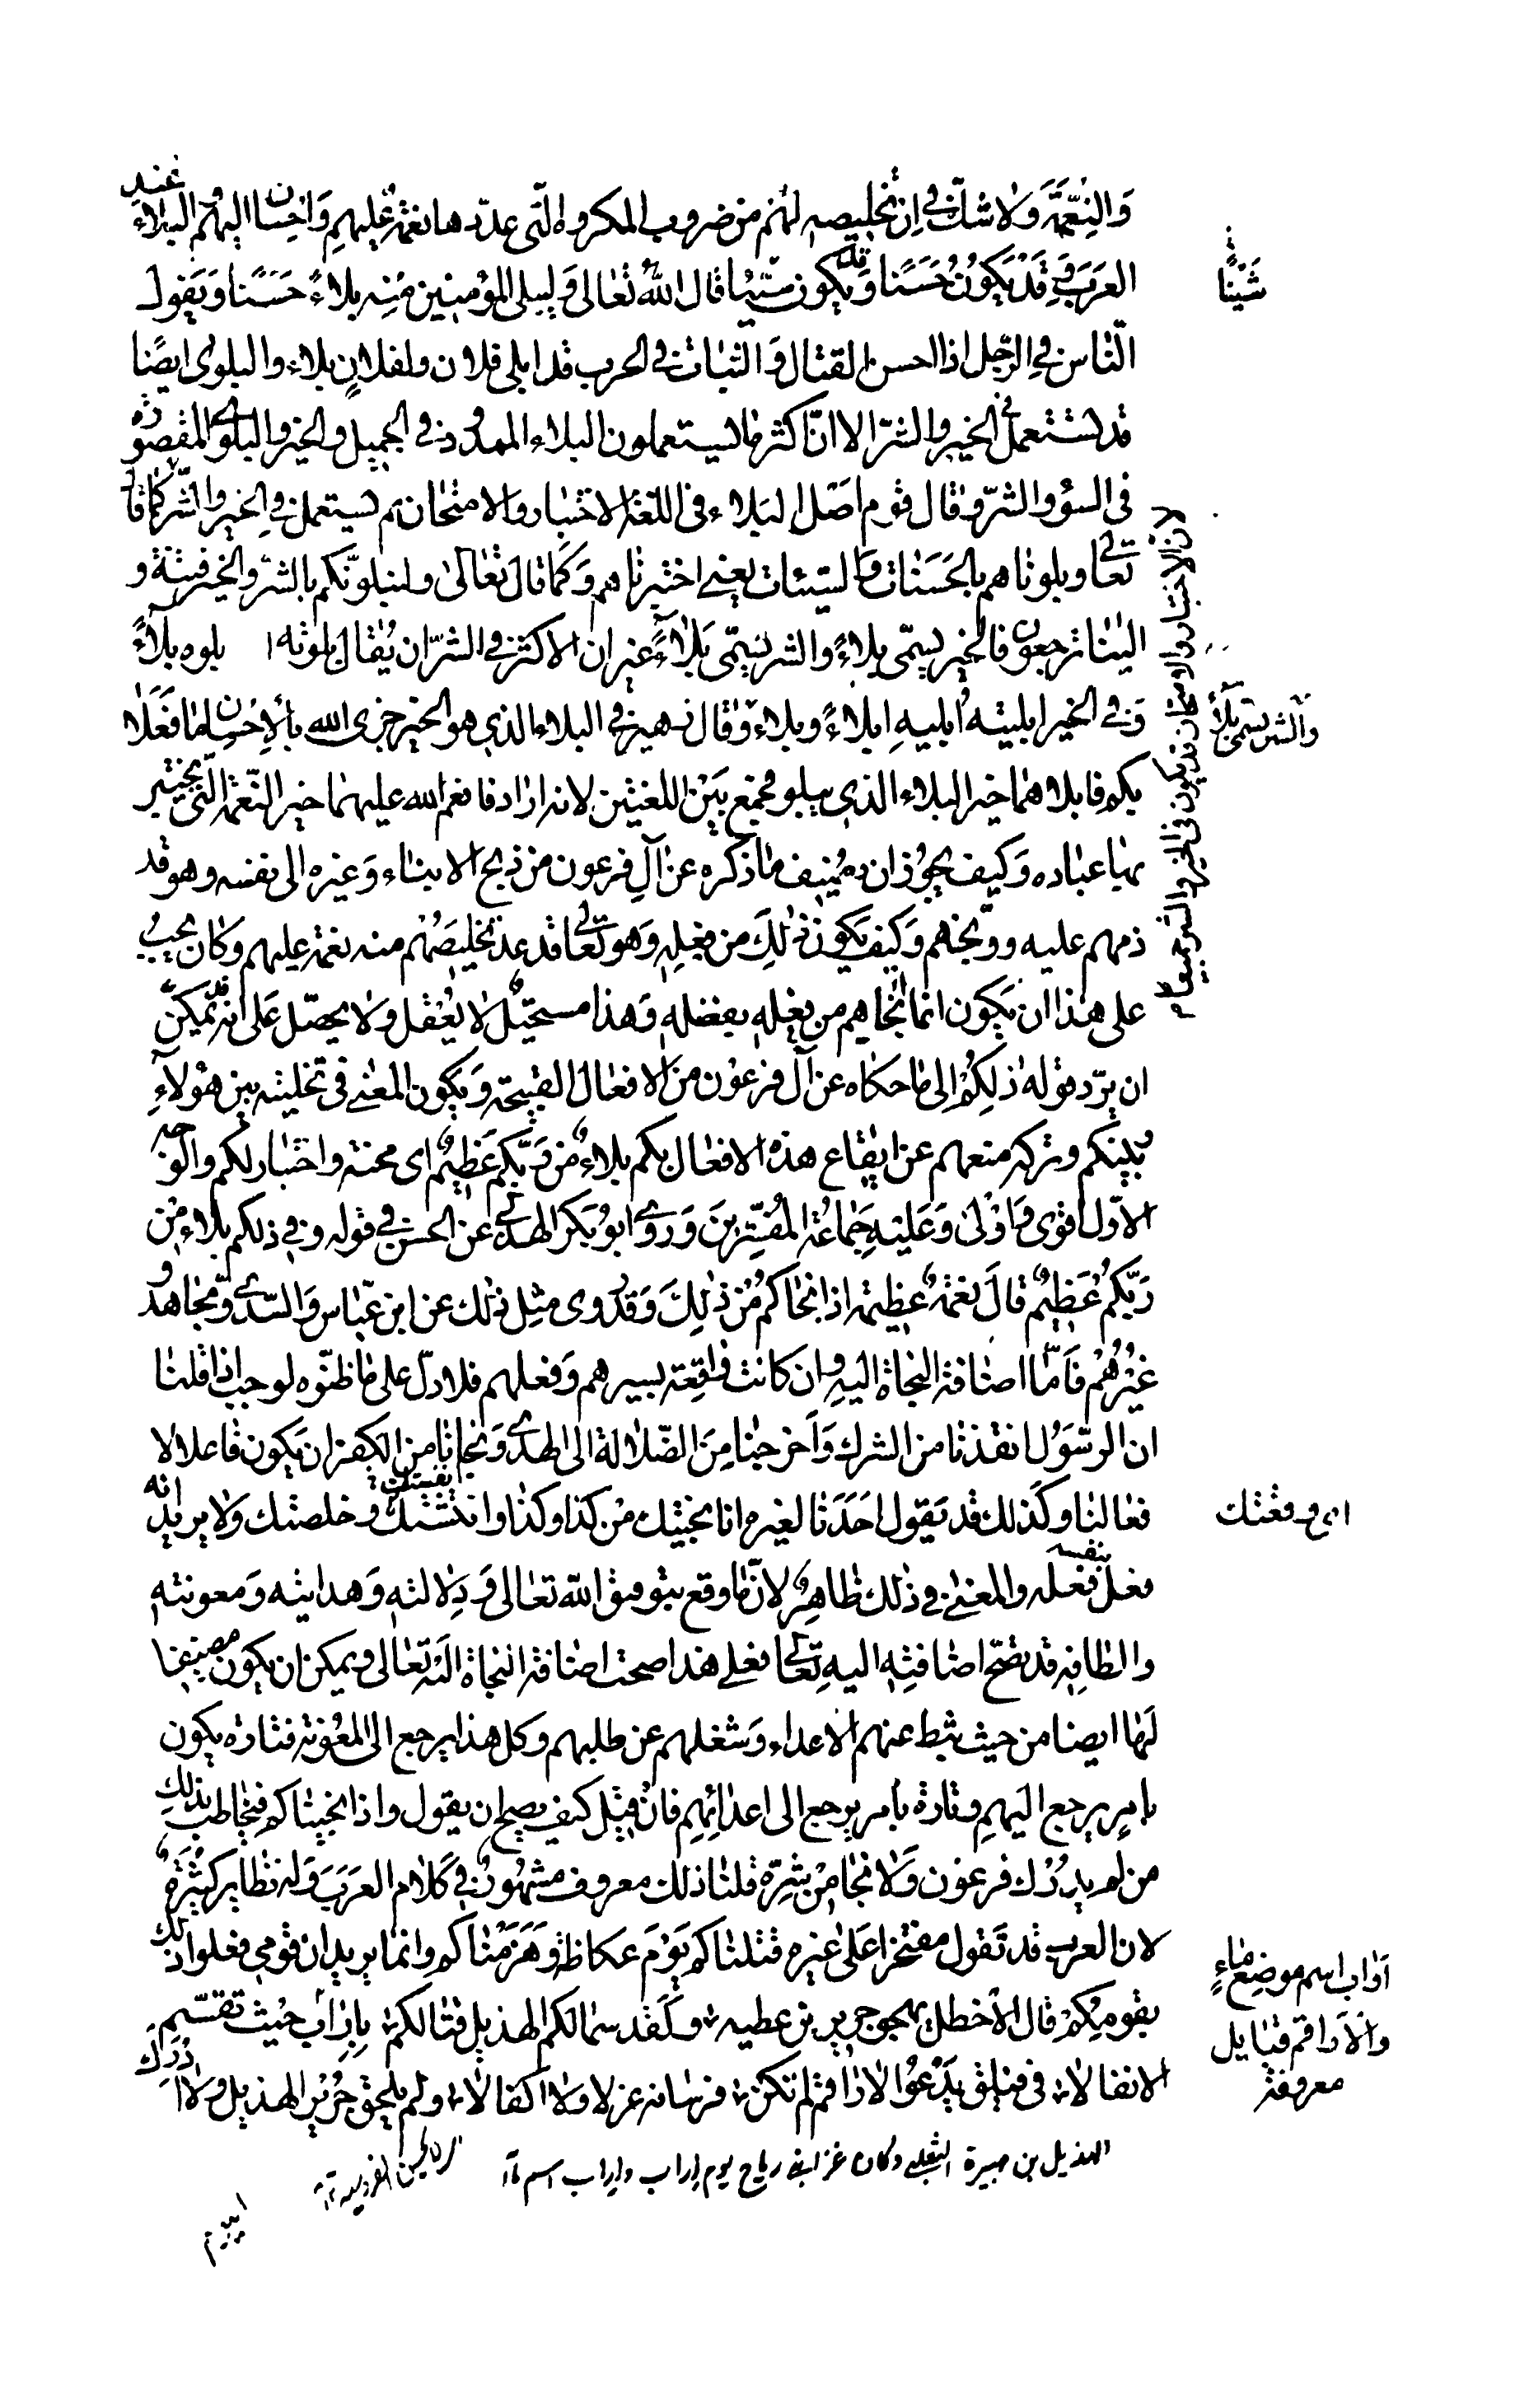 وَالنِّعمَّة وَلا شكّ في اِنَّ تخليصه لهُم من ضروب المكروه الّتى عدّدها نعمَة عليهمِ وَاحِسان اليهم البلاءُ عند
العَرَبِ قَدْ يَكوُنُ حَسَنًا وَقد يكون سَيّئا قالَ اللهُ تعَالى وَليبلى المؤمنين مِنه بلاءً حَسَنًا وَيَقول
النّاس في الرّجل اذا احسن القتال وَالثبات في الحرب قد ابلى فلان ولفلانٍ بلاء والبلوى ايضًا
قد تستعمل في الخير والشرّ الا انّ اكثر ما يستعملون البلاء الممدود في الجميل والخير والبلوى المقصورة
فى السوُ والشرّ وقال قوم اصَل البَلاء في اللغة الاختبار والامتحان ثم يستعمل في الخير والشرّ كما قال
تعالى وبلوناهم بالحَسَنات وَالسيّئات يعني اختبرناهم وَكما قالَ تعَالىٰ ولنبلونّكم بالشرّ والخير فتنة و
الينا ترجعون فالخير يسمّى بلاءً والشر يسَمّى بَلاءً غير ان الاكثر في الشرّ ان يُقال بلوته ا بلوه بلاءً
وَفي الخير ابليته اُبليهِ ابلاءً وبلاءً وقال زهير في البلاء الذي هو الخير جزى الله بالاِحْسان ما فعَلا
بكم فابلاهما خير البلاء الذي يبلو فجمع بَيْن اللغتين لانه اراد فانعم الله عليهما خير النّعمة الّتي يختبر
بها عباده وَكيف يجوُز ان يُضيف ما ذكره عن آلِ فِرعون من ذبح الابناء وَغيره الى نفسه وهو قد
ذمهم عليه ووبّخهم وَكيف يكون ذلكَ من فِعلِه وَهو تعالى قد عدّ تخليصَهُم منه نعمة عليهم وكان يجبُ
على هذا ان يَكون انما نجّاهم من فِعلِه بفعله وَهذا مستحيلٌ لا يُعْقل وَلا يحصّل عَلى انّه قد يمكن
ان يردّ قوله ذلِكُمْ الى ما حكاه عن آل فرعَوْن من الافعال القبيحة وَيكون المعنى في تخليته بين هوُلآءِ
وبَينكم وتركه منعهم عن ايقاع هذه الافعال بكم بلاءٌ من رَبّكم عَظيمٌ اى محنة واختبار لكم والوَجه
الاوّل اقوى وَاوْلىٰ وَعَليْهِ جَماعَةُ المُفسّرينَ وَروى ابوُ بَكر الهذلي عن الحسن في قوله وفي ذلكم بلاءٌ من
رَبّكُمْ عَظيمٌ قالَ نعمةٌ عظيمة اذا نجاكم مُن ذلِكَ وَقد روى مثِل ذلك عن ابن عبّاس وَالسّدي وَمجاهد و
غَيْرُهُمْ فَاَمّا اضافة النجاة اليهِ وان كانت واقعة بسيرهم وَفعلهم فلا دلّ على ما ظنّوه لوجب اذا قلنا
ان الرسَوُل انقذنا من الشرك وَاَخرجنا مِنَ الضّلالة الى الهدى وَنجانا من الكفر ان يَكون فاعلا لا
فعالنا وكذلك قد يَقول احَدَنا لغيره انا نجيتك مْن كذا وكذا وانتشتك وخلصتك وَلا يريد انه
فعل بنفسه فعله والمعنى في ذلك ظاهرٌ لانّ ما وقع بتوفيق الله تعالى وَدِلالته وَهدايته وَمعونته
والطافه قد تصّح اضافتِه اليهِ تعالى فعلى هذا صحت اضافة النجاة اليَه تعَالى ويمكن ان يكون مضيفا
لَها ايضا من حيث ثبط عنهم الاعداء وَشغلهم عن طلبهم وكل هذا يرجع الى المعُونة فتارة يكون
بامرٍ يرجع اليَهمِ وتارة بامر يرجع الى اعدائِهِم فانْ قيل كيف يصح ان يقول واذ انجيناكم فيخاطب بذلك
من لم يدرُك فرعون وَلا نجا مِنْ شرّه قلنا ذلك معروف مشهُورٌ في كَلام العَرَبَ وَله نظاير كثيرَةٌ
لان العرب قد تَقول مفتخرا عَلى غيره قتلنا كم يَوْم عكاظ وَهَزَمْنا كم وانما يريد ان قومي فعلوا ذلك
بقومِكُمْ قال الاَخطل يهجو جرير بن عطيه وَلَقد سما لكم الهذيل فنالكم بِاِرابَ حَيْث تقسّم
الانفالا في فيلق يدْعُوا الاراقم لم تكن فرسانه عزلا وَلا اكفالا ولم يلحق جَريْر الهذيل وَلا اَدْرَكَ
شَيْنًا
لان الاختبار والامتحان قد يكون في الخير والشر جميعا
والشر يسمّى بلاءً
اراب اسم موضع ماءٍ
والاَراقم قبايل
معروفة
الهذيل بن هبيرة الثعلبي وكان غزا بني رياح يوم اِراب واِراب اسم ماء